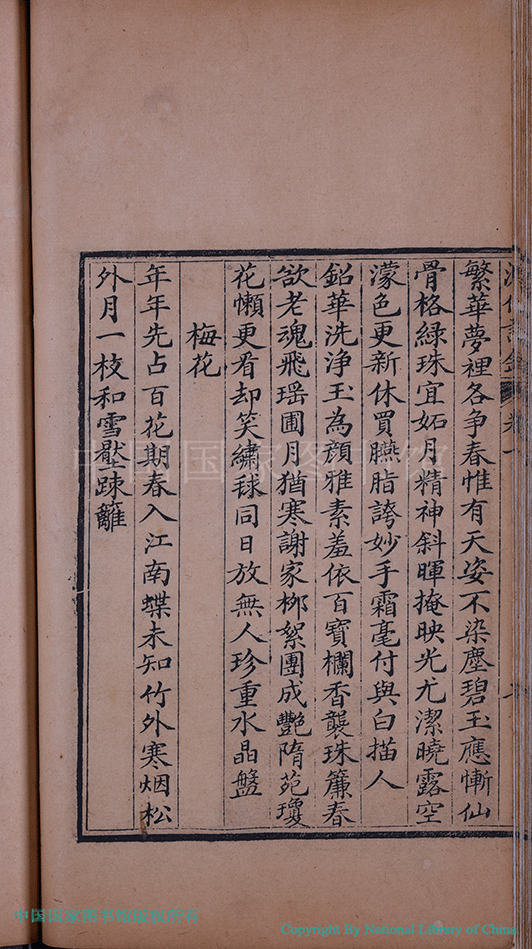 繁華夢裡各争春惟有天姿不染塵碧玉應慚仙
骨格綠珠宜妬月精神斜暉掩映光尤潔曉露空
濛色更新休買臙脂誇妙手霜毫付與白描人
鉛華洗浄玉為顔雅素羞依百寶欄香襲珠簾春
欲老魂飛瑶圃月猶寒謝家栁絮團成艷隋苑瓊
花懶更看却笑繡毬同日放無人珍重水晶盤
梅花
年年先占百花期春入江南蝶未知竹外寒烟松
外月一枝和雪壓踈籬
中国国家图书馆
中国国家图书馆版权所有
Copyright By National Library of China